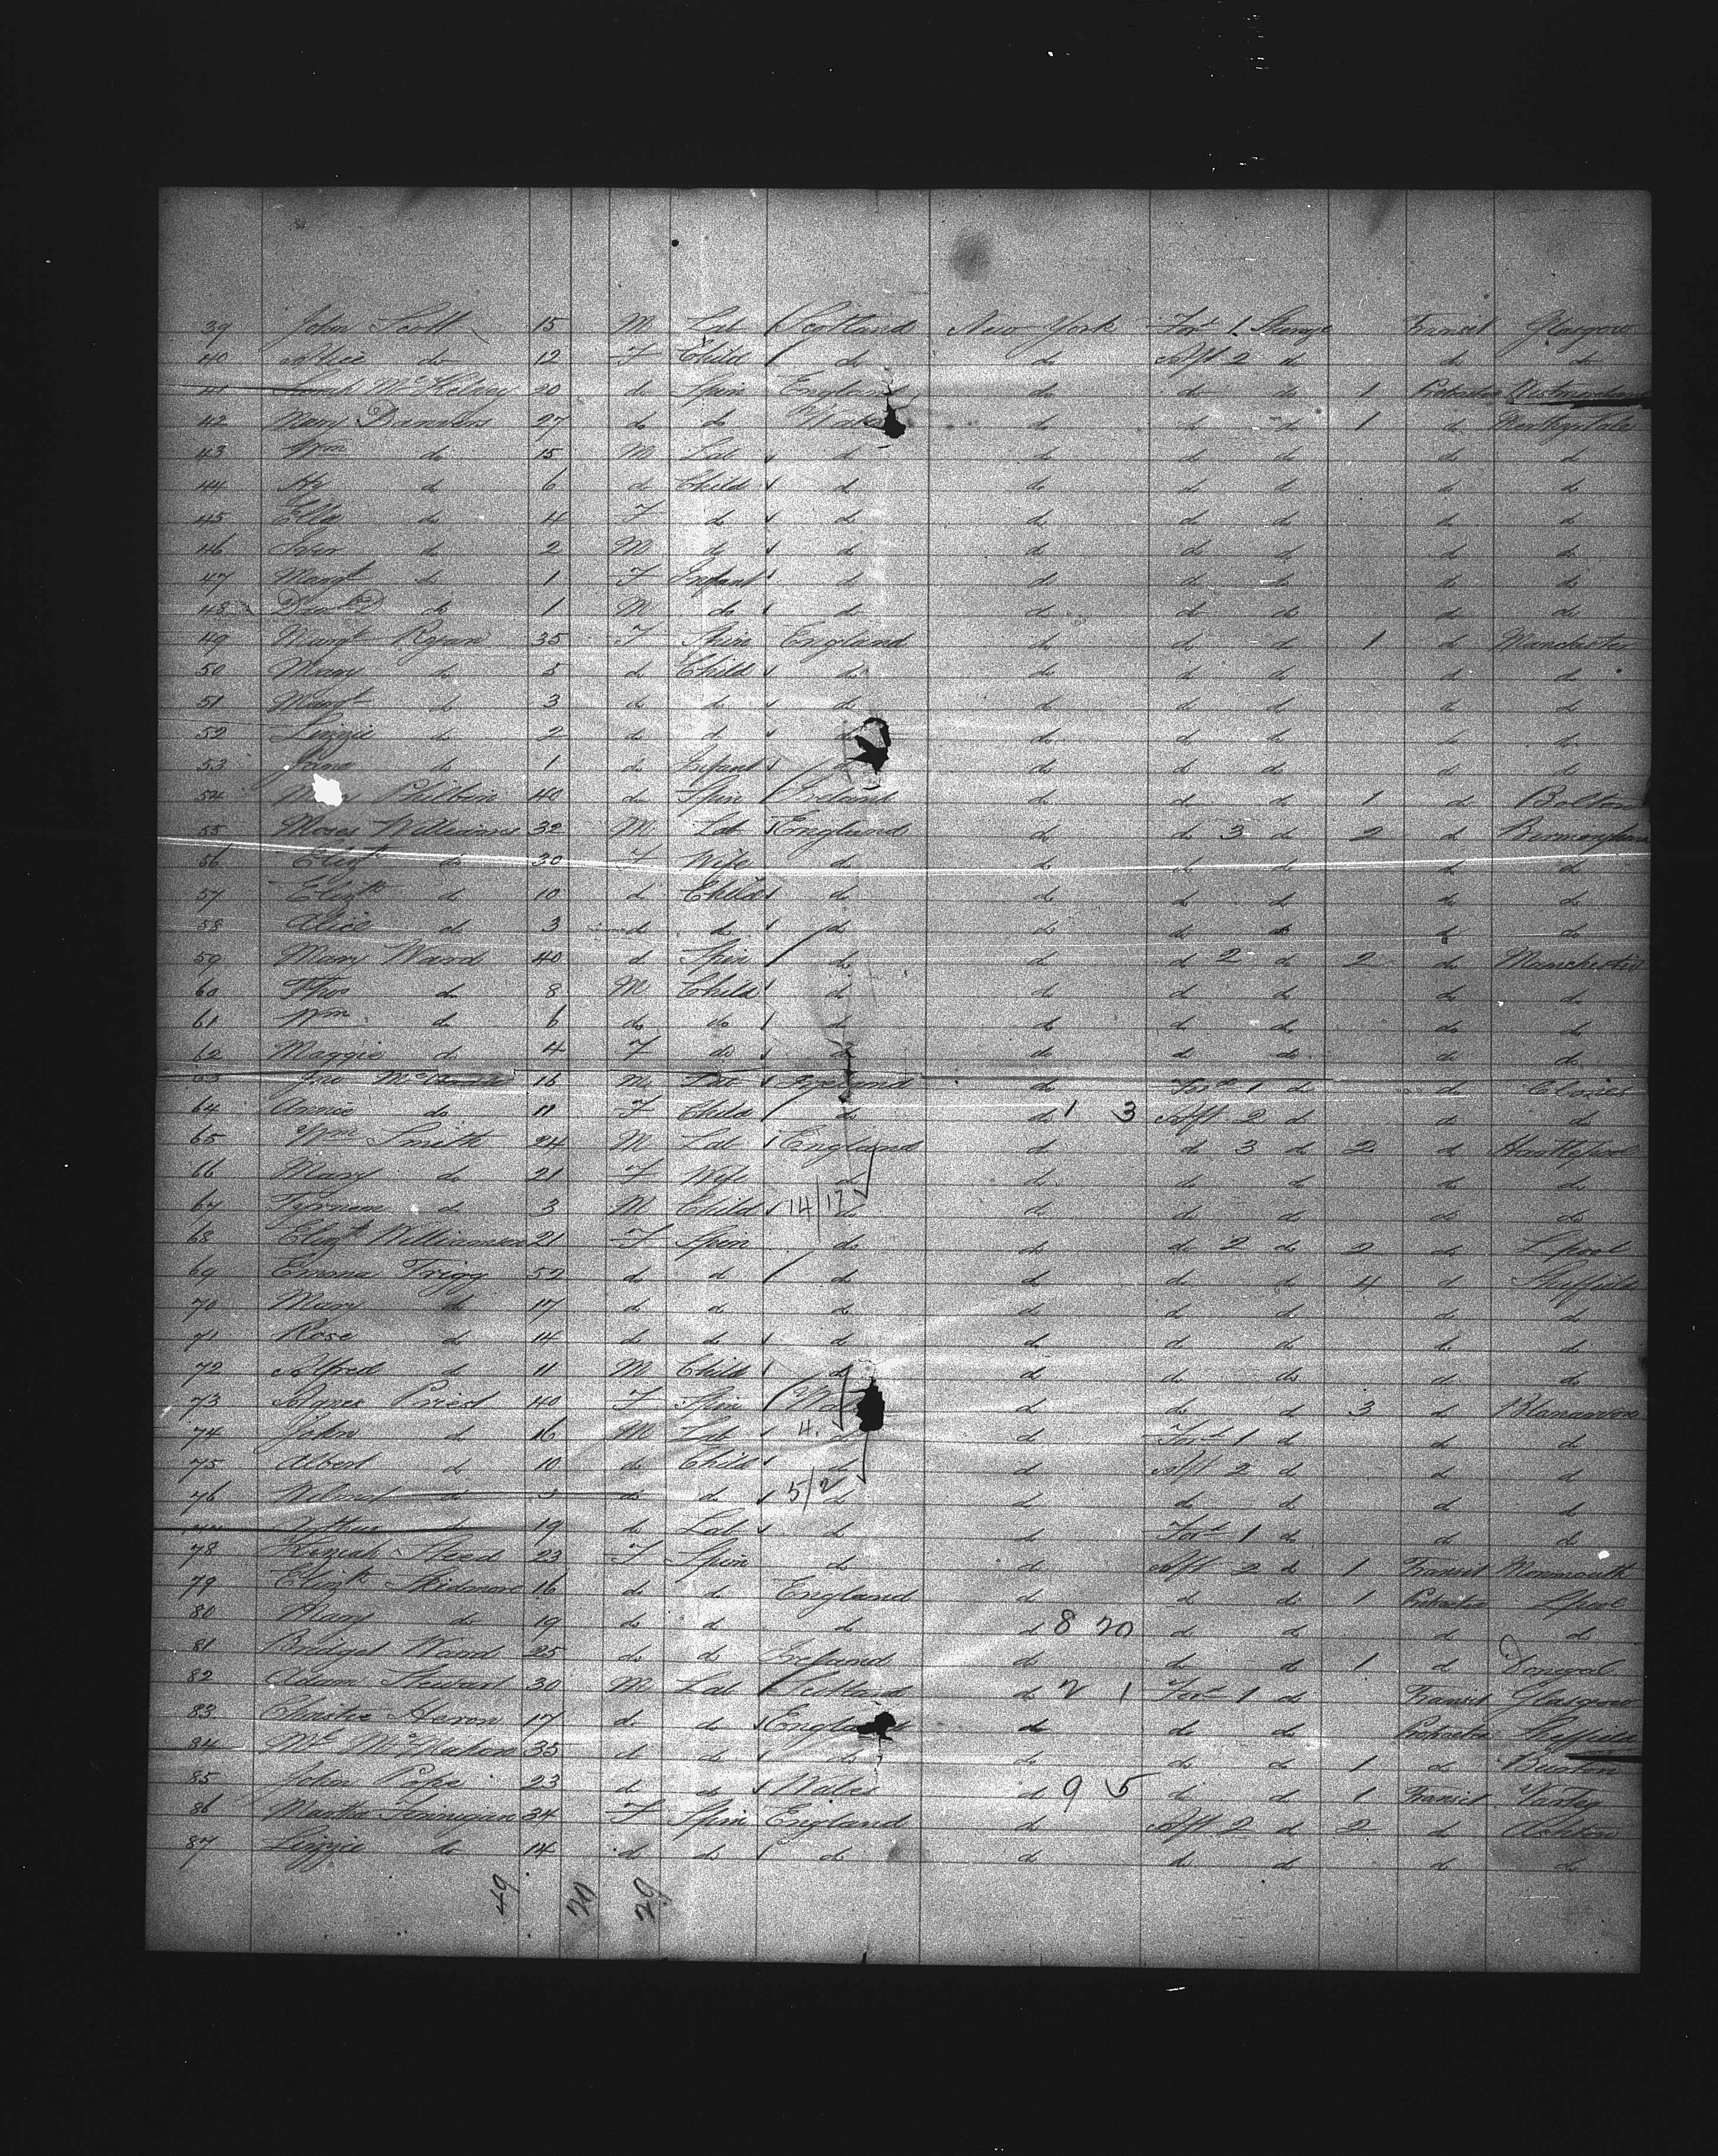 39 John Scott 15 M Lab Scotland New York For^d 1 Steerage Transit Glasgow
40 Alice do 12 F Child do do Aft 2 do do do
41 20 do Spin England do do do 1 Protracted
42 Mary 27 do do Wales do do do 1 do
43 Wm do 15 M Lab do do do do do do
44 do 6 do Child do do do do do do
45 Ella do 4 F do do do do do do do
46 do 2 M do do do do do do do
47 Margt do 1 F Infant do do do do do do
48 do 1 M do do do do do do do
49 Margt Ryan 35 F Spin England do do do 1 do Manchester
50 Mary do 5 do Child do do do do do do
51 Margt do 3 do do do do do do do do
52 Lizzie do 2 do do do do do do do do
53 do 1 do Infant do do do do do
54 Philbin 40 do Spin Ireland do do do 1 do Bolton
55 Moses Williams 32 M Lab England do do 3 do 2 do Birmingham
56 Elizth do 30 F Wife do do do do do do
57 Elizth do 10 do Child do do do do do do
58 Alice do 3 do do do do do do do do
59 Mary Ward 40 do Spin do do do 2 do 2 do Manchester
60 Thos do 8 M Child do do do do do do
61 Wm do 6 do do do do do do do do
62 Maggie do 4 F do do do do do do do
63 16 M Lab Ireland do For^d 1 do do
64 Annie do 11 F Child do do 1 3 Aft 2 do do do
65 Wm Smith 24 M Lab England do do 3 do 2 do Hartlepool
66 Mary do 21 F Wife do do do do do do
67 do 3 M Child 14/17 do do do do do do
68 Elizth Williamson 21 F Spin do do do 2 do 2 do Lpool
69 Emma Trigg 52 do do do do do do 4 do Sheffield
70 Mary do 17 do do do do do do do do
71 Rose do 14 do do do do do do do do
72 Alfred do 11 M Child do do do do do do
73 Agnes Pried 40 F Spin do do do 3 do Blanavon
74 John do 16 M Lab 4 do do For^d 1 do do do
75 Albert do 10 do Child do do Aft 2 do do do
76 do 3 do do 5/2 do do do do do do
77 Arthur do 19 do Lab do do For^d 1 do do do
78 Keziah Steed 23 F Spin do do Aft 2 do 1 Transit Monmouth
79 Elizth Skidmore 16 do do England do do do 1 Lpool
80 Mary do 19 do do do do 8 20 do do do do
81 Bridget Ward 25 do do Ireland do do do 1 do Donegal
82 Adam Stewart 30 M Lab Scotland do 2 1 For^d 1 do Transit Glasgow
83 Christie Heron 17 do do England do do do Sheffield
84 McMahon 35 do do do do do do 1 do
85 John Pope 23 do do Wales do 9 5 do do 1 Transit
86 Martha Finnigan 34 F Spin England do Aft 2 do 2 do Ashton
87 Lizzie do 14 do do do do do do do do
49 20 29